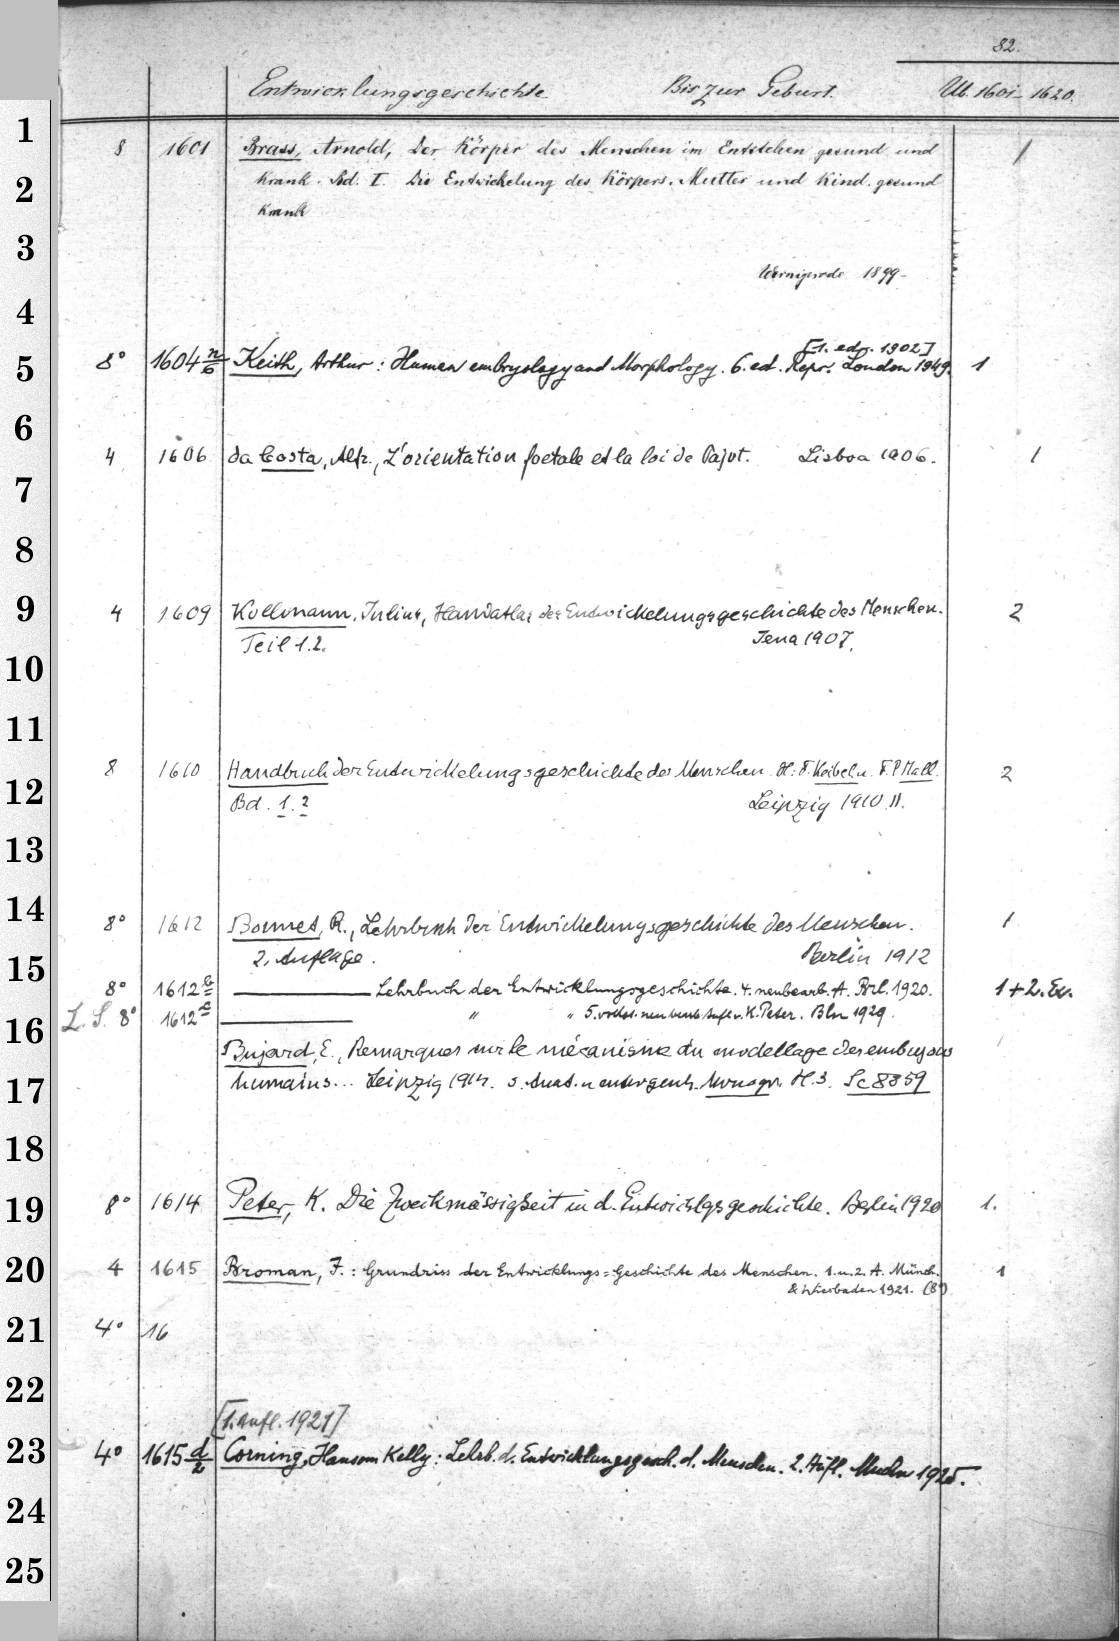 82.
Entwicklungsgeschichte Bis zur Geburt. Ub. 1601-1620.
1
8 1601 Brass, Arnold, Der Körper des Menschen im Entstehen gesund und 1
2
krank. Bd. I. Die Entwickelung des Körpers. Mutter und Kind. gesund
krank
3
Wernigerode 1899-
4
[1. ed. 1902]
5
8° 1604 n/6 Keith, Arthur: Human embryology and Morphology. 6. ed. Repr. London 1949. 1
6
4 1606 da Costa, Alfr., L'orientation foetale et la loi de Pajot. Lisboa 1906. 1
7
8
9
4 1609 Kollmann, Julius, Handatlas der Entwickelungsgeschichte des Menschen. 2
Teil 1.2. Jena 1907.
10
11
8 1610 Handbuch der Entwickelungsgeschichte des Menschen. H: F. Keibel u. F. P Mall. 2
12
Bd. 1. 2 Leipzig 1910.11.
13
14
8° 1612 Bonnet, R., Lehrbuch der Entwickelungsgeschichte des Menschen. 1
2. Auflage. Berlin 1912
15
8° 1612 b Lehrbuch der Entwicklungsgeschichte. 4. neubearb. A. Brl. 1920. 1+2. Ex.
L. S. 8° 1612 c " " 5. vollst. neu bearb. Aufl. v. K. Peter. Bln 1929.
16
Bujard, E., Remarques sur le mécanisme du modellage des embryons
17
humains... Leipzig 1914. s. Anat. u entw.gesch. Monogr. H. 3. Sc 8859
18
19
8° 1614 Peter, K. Die Zweckmässigkeit in d. Entwicklgsgeschichte. Berlin 1920 1.
20
4 1615 Broman, J.: Grundriss der Entwicklungs=Geschichte des Menschen. 1. u. 2. A. Münch. 1
& Wiesbaden 1921. (8°)
21
4° 16
22
[1. Aufl. 1921]
23
4° 1615 d/2 Corning, Hanson Kelly: Lehrb. d. Entwicklungsgesch. d. Menschen. 2. Aufl. Mchn 1925.
24
25